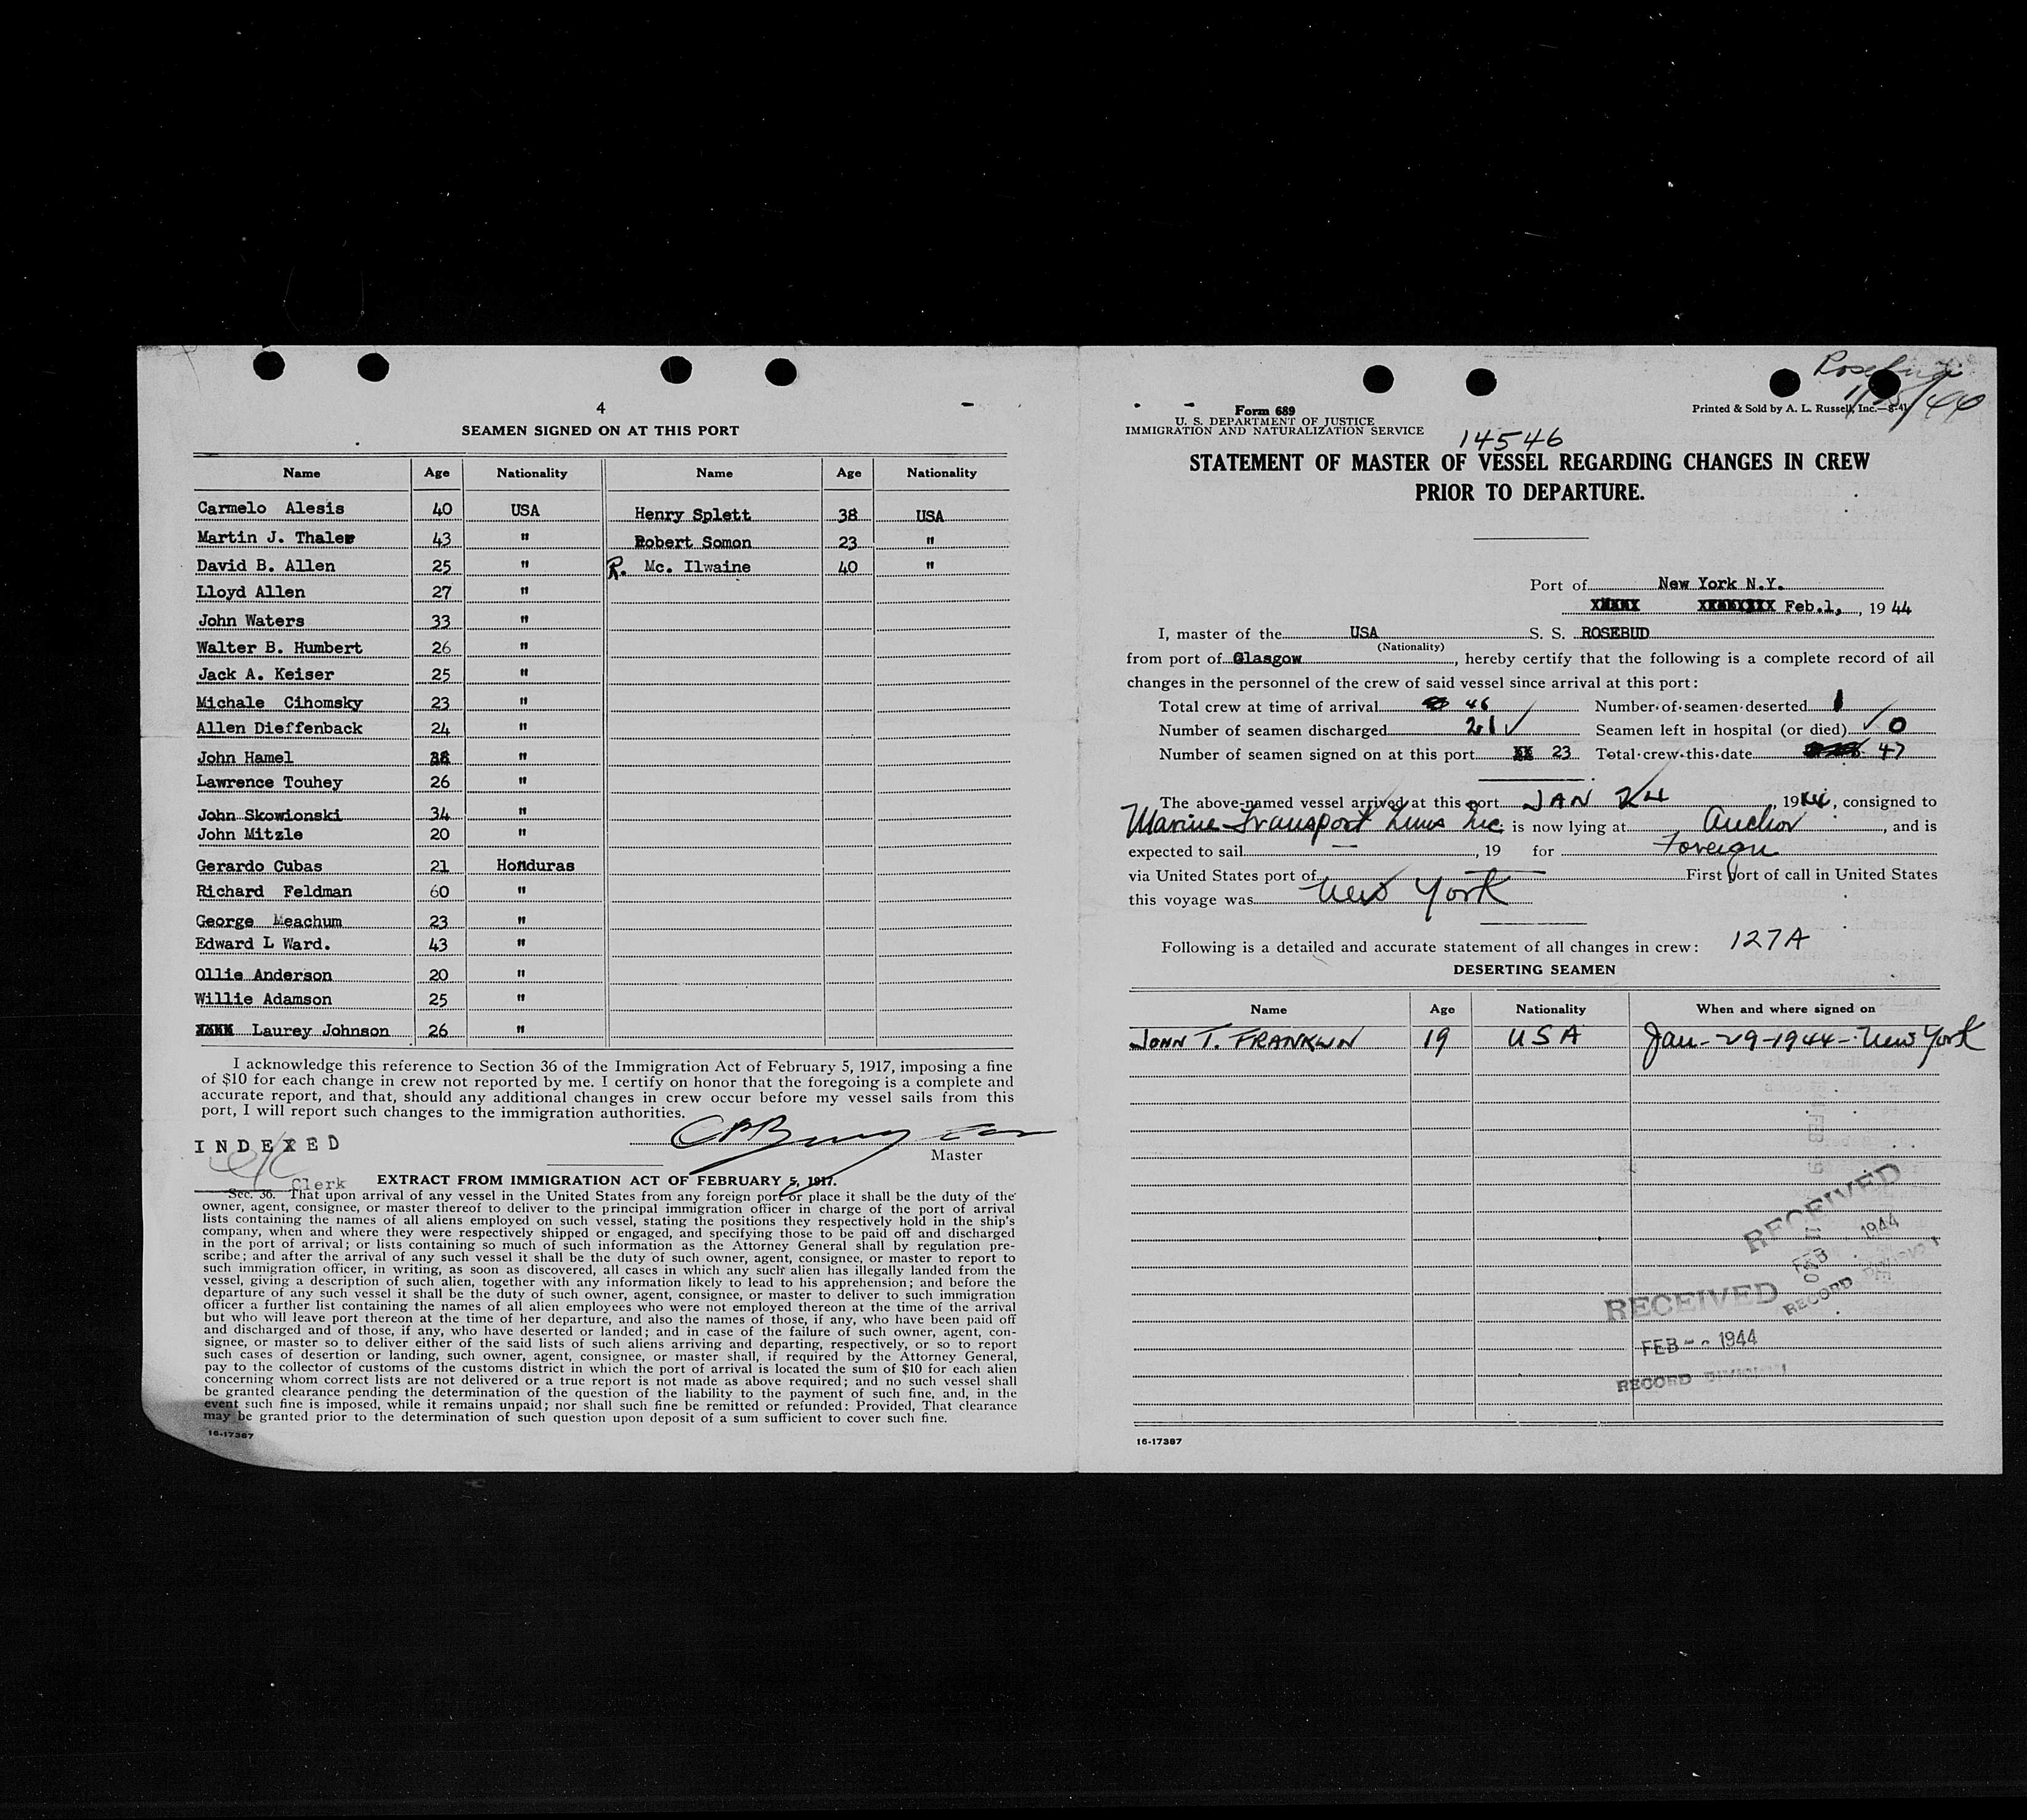 4
SEAMEN SIGNED ON AT THIS PORT
Name Age Nationality Name Age Nationality
Carmelo Alesis 40 USA Henry Splett 38 USA
Martin J. Thaler 43 " Robert Somon 23 "
David B. Allen 25 " R. Mc. Ilwaine 40 "
Lloyd Allen 27 "
John Waters 33 "
Walter B. Humbert 26 "
Jack A. Keiser 25 "
Michale Cihomsky 23 "
Allen Dieffenback 24 "
John Hamel "
Lawrence Touhey 26 "
John Skowionski 34 "
John Mitzle 20 "
Gerardo Cubas 21 Honduras
Richard Feldman 60 "
George Meachum 23 "
Edward L Ward. 43 "
Ollie Anderson 20 "
Willie Adamson 25 "
Laurey Johnson 26 "
I acknowledge this reference to Section 36 of the Immigration Act of February 5, 1917, imposing a fine
of $10 for each change in crew not reported by me. I certify on honor that the foregoing is a complete and
accurate report, and that, should any additional changes in crew occur before my vessel sails from this
port, I will report such changes to the immigration authorities.
INDEXED
Master
Clerk
EXTRACT FROM IMMIGRATION ACT OF FEBRUARY 5, 1917.
Sec. 36. That upon arrival of any vessel in the United States from any foreign port or place it shall be the duty of the
owner, agent, consignee, or master thereof to deliver to the principal immigration officer in charge of the port of arrival
lists containing the names of all aliens employed on such vessel, stating the positions they respectively hold in the ship's
company, when and where they were respectively shipped or engaged, and specifying those to be paid off and discharged
in the port of arrival; or lists containing so much of such information as the Attorney General shall by regulation pre-
scribe; and after the arrival of any such vessel it shall be the duty of such owner, agent, consignee, or master to report to
such immigration officer, in writing, as soon as discovered, all cases in which any such alien has illegally landed from the
vessel, giving a description of such alien, together with any information likely to lead to his apprehension; and before the
departure of any such vessel it shall be the duty of such owner, agent, consignee, or master to deliver to such immigration
officer a further list containing the names of all alien employees who were not employed thereon at the time of the arrival
but who will leave port thereon at the time of her departure, and also the names of those, if any, who have been paid off
and discharged and of those, if any, who have deserted or landed; and in case of the failure of such owner, agent, con-
signee, or master so to deliver either of the said lists of such aliens arriving and departing, respectively, or so to report
such cases of desertion or landing, such owner, agent, consignee, or master shall, if required by the Attorney General,
pay to the collector of customs of the customs district in which the port of arrival is located the sum of $10 for each alien
concerning whom correct lists are not delivered or a true report is not made as above required; and no such vessel shall
be granted clearance pending the determination of the question of the liability to the payment of such fine, and, in the
event such fine is imposed, while it remains unpaid; nor shall such fine be remitted or refunded: Provided, That clearance
may be granted prior to the determination of such question upon deposit of a sum sufficient to cover such fine.
16-17387
Rosebud
Form 689
U. S. DEPARTMENT OF JUSTICE
IMMIGRATION AND NATURALIZATION SERVICE
Printed & Sold by A. L. Russell, Inc.—8-41
14546
STATEMENT OF MASTER OF VESSEL REGARDING CHANGES IN CREW
PRIOR TO DEPARTURE.
Port of New York N.Y.
Feb.1, , 1944
I, master of the USA S. S. ROSEBUD
(Nationality)
from port of Glasgow , hereby certify that the following is a complete record of all
changes in the personnel of the crew of said vessel since arrival at this port:
Total crew at time of arrival 46 Number of seamen deserted 1
Number of seamen discharged 21 ✓ Seamen left in hospital (or died) ✓ 0
Number of seamen signed on at this port 23 Total crew this date 47
The above-named vessel arrived at this port JAN 24 , 1944, consigned to
Marine Transport Lines Inc. is now lying at Anchor , and is
expected to sail — , 19 for Foreign
via United States port of — First port of call in United States
this voyage was New York
Following is a detailed and accurate statement of all changes in crew: 127A
DESERTING SEAMEN
Name Age Nationality When and where signed on
JOHN T. FRANKLIN 19 USA Jan-29-1944-New York
RECEIVED
FEB 1944
RECORD DIVISION
RECEIVED
FEB 1944
RECORD DIVISION
16-17387